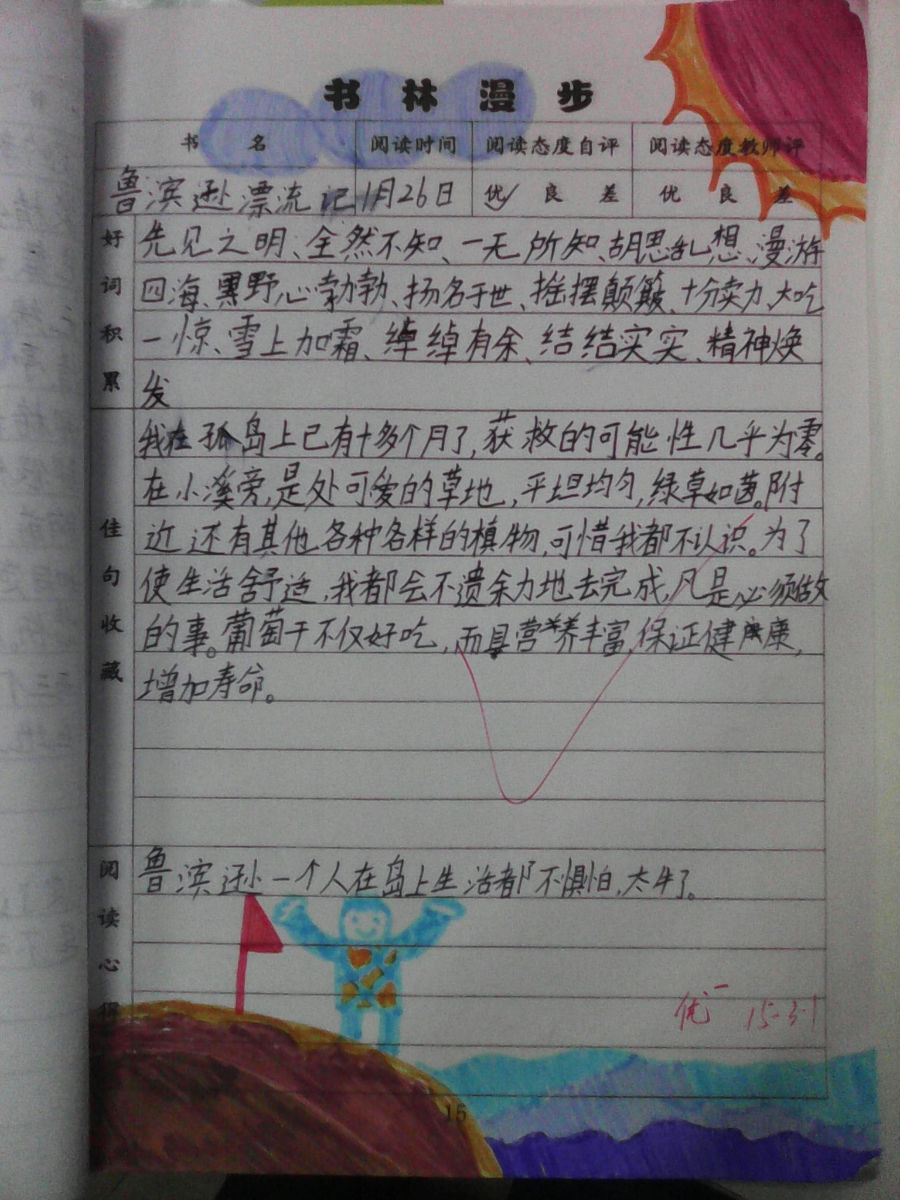 书林漫步
书名 阅读时间 阅读态度自评 阅读态度教师评
鲁滨逊漂流记 1月26日 优√ 良 差 优 良 差
好词积累
先见之明、全然不知、一无所知、胡思乱想、漫游
四海、野心勃勃、扬名于世、摇摆颠簸、十分卖力、大吃
一惊、雪上加霜、绰绰有余、结结实实、精神焕
发
佳句收藏
我在孤岛上已有十多个月了,获救的可能性几乎为零。
在小溪旁,是处可爱的草地,平坦均匀,绿草如茵。附
近还有其他各种各样的植物,可惜我都不认识。为了
使生活舒适,我都会不遗余力地去完成凡是必须做
的事。葡萄干不仅好吃,而且营养丰富,保证健康,
增加寿命。
阅读心得
鲁滨逊一个人在岛上生活都不惧怕,太牛了。
优- 15.3.1
15